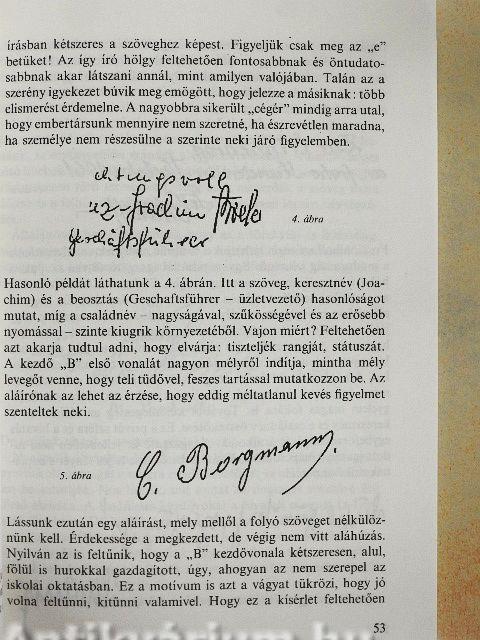 írásban kétszeres a szöveghez képest. Figyeljük csak meg az „e”
betüket! Az így író hölgy feltehetően fontosabbnak és öntudato-
sabbnak akar látszani annál, mint amilyen valójában. Talán az a
szerény igyekezet búvik meg emögött, hogy jelezze a másiknak: több
elismerést érdemelne. A nagyobbra sikerült „cégér” mindig arra utal,
hogy embertársunk mennyire nem szeretné, ha észrevétlen maradna,
ha személye nem részesülne a szerinte neki járó figyelemben.
achtungsvoll
4. ábra
Geschäftsführer
Hasonló példát láthatunk a 4. ábrán. Itt a szöveg, keresztnév (Joa-
chim) és a beosztás (Geschaftsführer – üzletvezető) hasonlóságot
mutat, míg a családnév – nagyságával, szűkösségével és az erősebb
nyomással – szinte kiugrik környezetéből. Vajon miért? Feltehetően
azt akarja tudtul adni, hogy elvárja: tiszteljék rangját, státuszát.
A kezdő „B” első vonalát nagyon mélyről indítja, mintha mély
levegőt venne, hogy teli tüdővel, feszes tartással mutatkozzon be. Az
aláírónak az lehet az érzése, hogy eddig méltatlanul kevés figyelmet
szenteltek neki.
5. ábra
C. Borgmann.
Lássunk ezután egy aláírást, mely mellől a folyó szöveget nélkülöz-
nünk kell. Érdekessége a megkezdett, de végig nem vitt aláhúzás.
Nyilván az is feltűnik, hogy a „B” kezdővonala kétszeresen, alul,
fölül is hurokkal gazdagított, úgy, ahogyan az nem szerepel az
iskolai oktatásban. Ez a motívum is azt a vágyat tükrözi, hogy jó
volna feltűnni, kitűnni valamivel. Hogy ez a kísérlet feltehetően
53